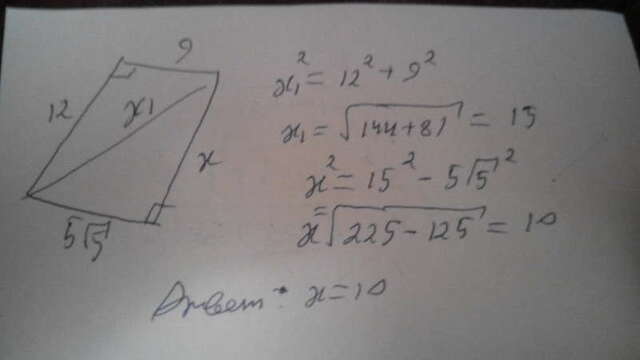 9
12
x₁
x
5√5
x₁² = 12² + 9²
x₁ = √144+81 = 15
x² = 15² - 5√5²
x = √225-125 = 10
Ответ: x=10